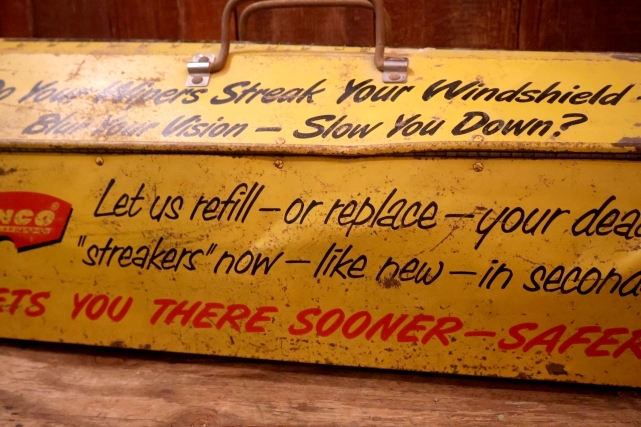 o Your Wipers Streak Your Windshield -
Blur Your Vision - Slow You Down?
NCO ®
Let us refill - or replace - your dead
"streakers" now - like new - in second
ETS YOU THERE SOONER - SAFER